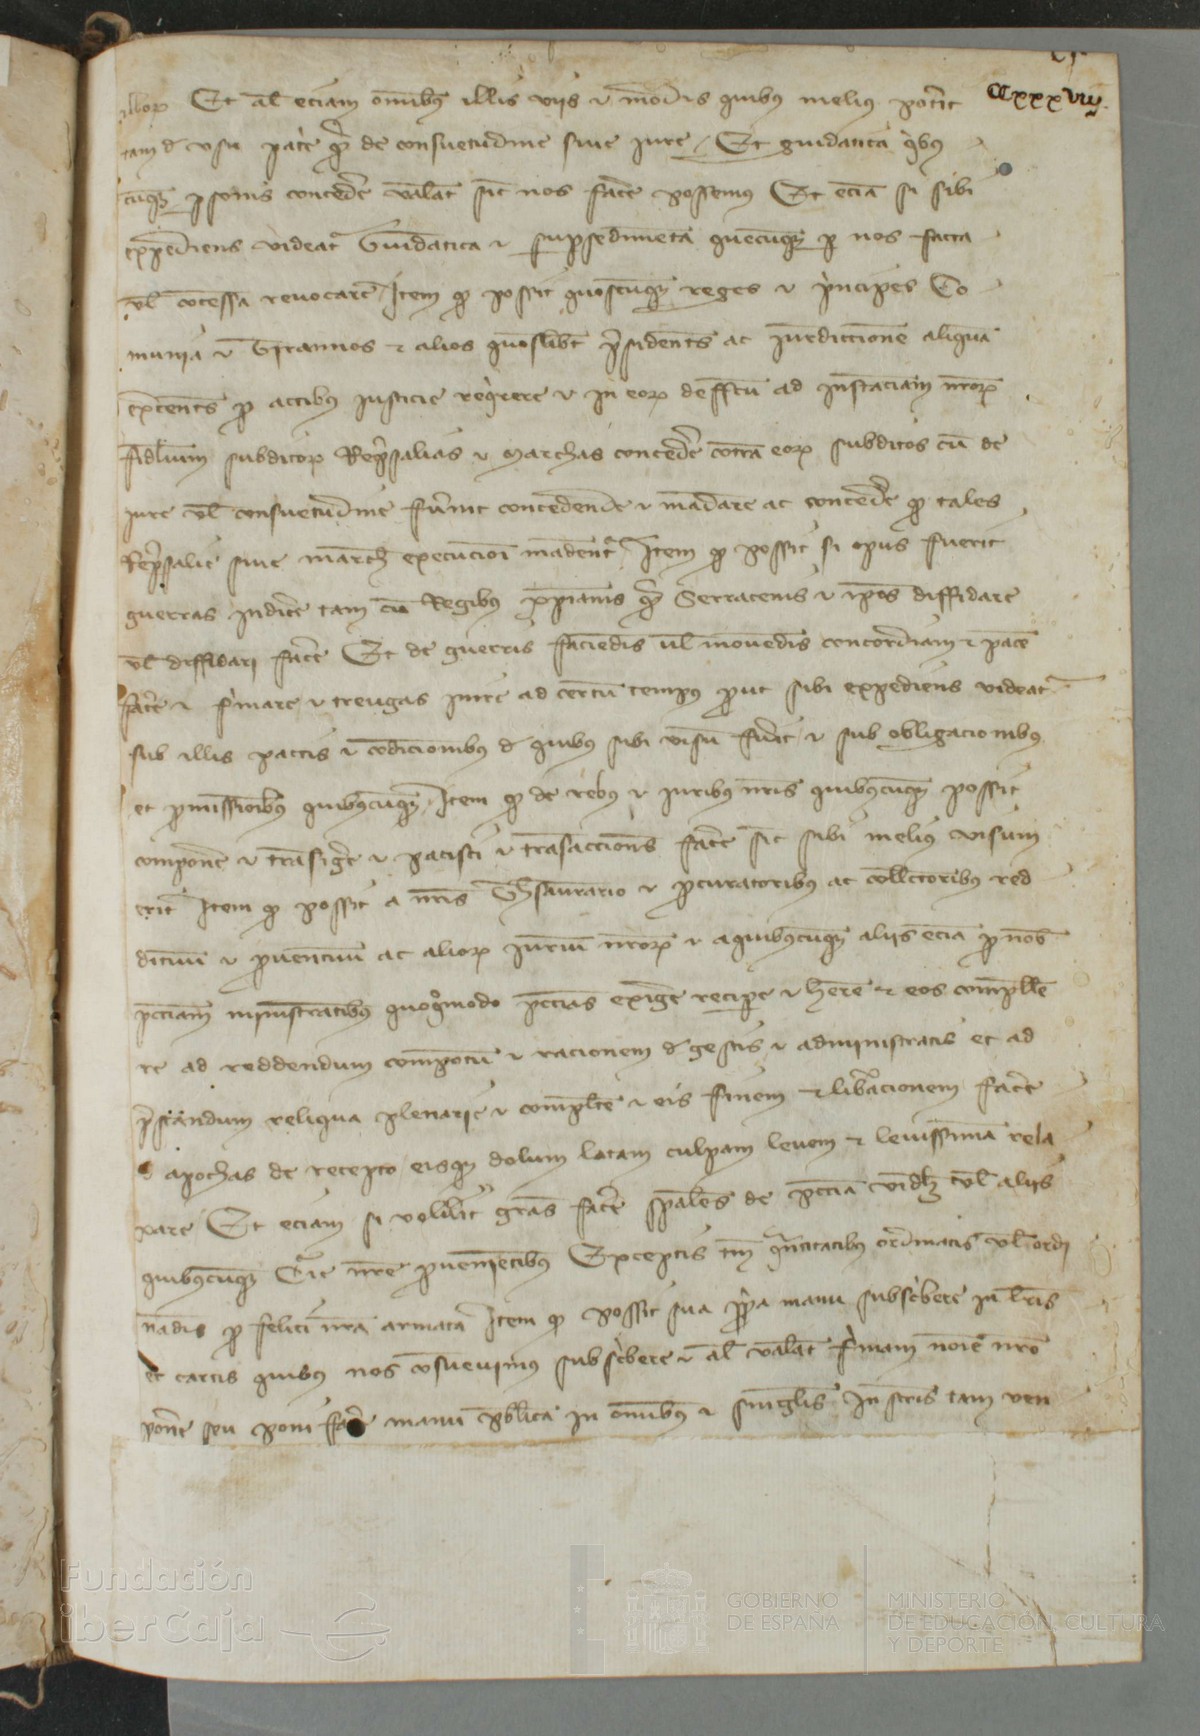 CCxxxviij
illorum Et al eciam omnibus illis viis et modis quibus melius poterit
tam de usu pate qm de consuetudine sive jure / Et guidatica quibus
cumque personis concedere valeat sicut nos facere possemus Et eciam si sibi
expediens videatur Guidatica et supersedimenta quecumque per nos facta
vel concessa revocare / Item quod possit quoscumque reges et principes Co
munia et Tirannos et alios quoslibet presidentes ac jurediccionem aliquam
exercentes pro actibus justicie requirere et in eorum deffectum ad instanciam nostrorum
fidelium subditorum Represalias et Marchas concedere contra eorum subditos cum de
jure vel consuetudine fuerint concedende et mandare ac concedere quod tales
Represalie sive marche execucioni mandentur Item quod possit si opus fuerit
guerras indicere tam cum Regibus xpianis quam Serracenis et ipsos diffidare
vel diffidari facere Et de guerris faciendis vel movendis concordiam et pacem
facere et firmare et treugas inire ad certum tempus prout sibi expediens videatur
sub illis pactis et condicionibus de quibus sibi visum fuerit et sub obligacionibus
et promissionibus quibuscumque / Item quod de rebus et juribus nostris quibuscumque possit
componere et transigere et pacisci et transacciones facere sicut sibi melius visum
erit Item quod possit a nostris Thesaurario et procuratoribus ac collectoribus red
dituum et proventuum ac aliorum jurium nostrorum et a quibuscumque aliis eciam pro nobis
pecuniam ministrantibus quoquomodo peccunias exigere recipere et habere et eos compelle
re ad reddendum compotum et racionem de gestis et administratis et ad
prestandum reliqua plenarie et complete et eis finem et liberacionem facere
et apochas de recepto eisque dolum latam culpam levem et levissimam rela
xare / Et eciam si voluerit gracias facere speciales de peccunia videlicet vel aliis
quibuscumque Curie nostre provenientibus Exceptis tamen quantitatibus ordinatis vel ordi
nandis pro felici nostra armata Item quod possit sua propria manu subscribere in litteris
et cartis quibus nos consuevimus subscribere et al valeat firmam nomine nostro
ponere seu poni facere manu publica in omnibus et singulis Instrumentis tam ven
Fundación
iberCaja
GOBIERNO
DE ESPAÑA
MINISTERIO
DE EDUCACIÓN, CULTURA
Y DEPORTE